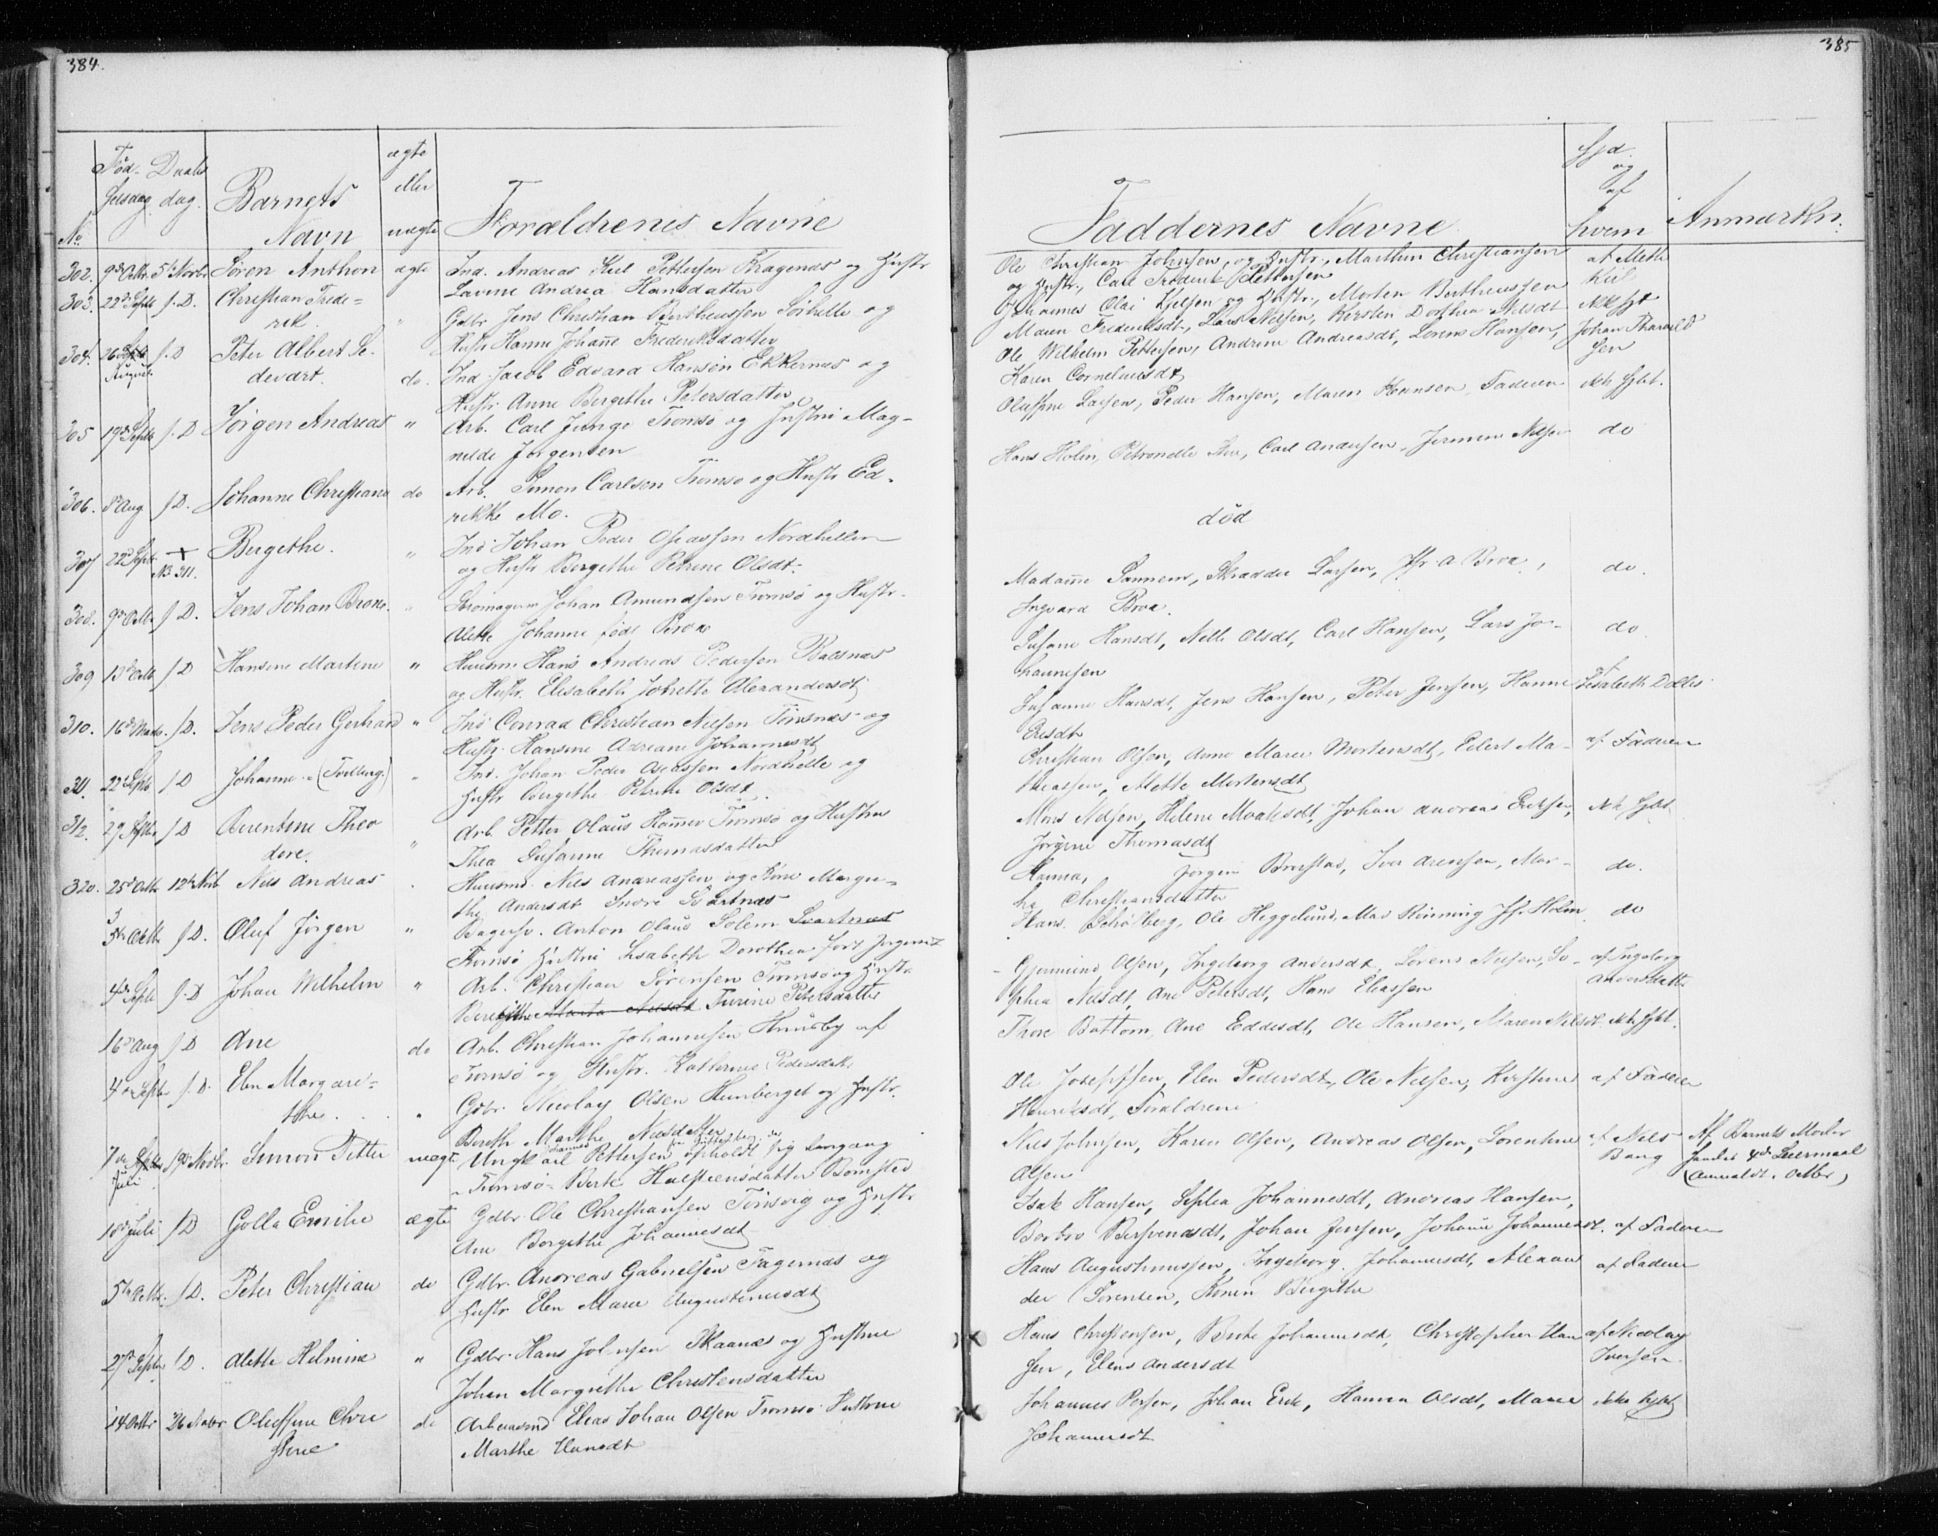 384.
No
Fødselsdag
Daabsdag
Barnets Navn
ægte eller uægte
Forældrenes Navne
302. 9de Octbr. 5te Novbr. Søren Anthon ægte Ind. Andreas Kiel Pettersen Kragenæs og Hustr
Lavine Andrea Hansdatter
303. 22de Septb. s.D. Christian Frederik " Gdbr. Jens Christian Bertheussen Sørhelle og
Hustr Hanna Johane Frederiksdatter
304. 26 August s.D Peter Albert Sedevart. do. Ind. Jacob Edvard Hansen Ekkernæs og
Hustr. Anne Bergithe Petersdatter
305 19de Septb s.D Jørgen Andreas " Arb. Carl Junge Tromsø og Hustru Magnilde Jørgensen
306. 8de Aug s.D. Johanne Christiane do Arb. Simon Carlson Tromsø og Hustr Edrikke Mo.
307 22de Septb + No 311. Bergethe. " Ind Johan Peder Oseassen Nordhellen
og Hustr Bergithe Petrine Olsdt.
308. 9de Octb s.D. Jens Johan Brone. " Johan Amundsen Tromsø og Hustr.
Alette Johanne født Brox
309 13de Octb s.D Hansine Martine " Huusm. Hans Andreas Pedersen Balsnæs
og Hustr. Elisabeth Jobrette Alexandersdt
310. 16de s.D. Jens Peder Gerhard " Ind Conrad Christian Nilsen Tønsnæs og
Hustr. Hansine Adriane Johannesdt
311. 22de Septb s.D Johanne (Tvilling.) " Ind. Johan Peder Oseassen Nordhelle og
Hustr Bergithe Petrine Olsdt.
312. 29 Septbr s.D Berentine Theodore. " Arb. Petter Olaus Hamer Tromsø og Hustru
Thea Susanne Thomasdatter
320. 25de Octb 12te Novb Nils Andreas . Huusmd. Nils Andreassen og Kone Margrethe Andersdt Indre Svartnæs
5te Octbr s.D. Oluf Jørgen " Bagersv. Anton Olaus Solem Svartnæs
Tromsø Hustru Lisabeth Dorothea født Jørgens
4de Septb s.D Johan Wilhelm " Arb. Christian Sørensen Tromsø og Hustr.
Berethe Marta Nilsdt Turine Petersdatter
16de Aug s.D Ane do Arb. Christian Johannesen Huusby af
Tromsø og Hustr. Kathrine Pedersdatt.
4de Septb s.D. Elen Margarethe. " Gdbr Nicolay Olsen Hunberget og Hustr.
Bereth Marthe Nilsdatter
7de Septb Juli s.D. Novbr. Simon Petter uægte Ungk Johannes Pettersen opholdt sig
Tromsø Berte Halstensdatter Bomsted
18de Juli s.D Golla Emilie ægte Gdbr. Ole Christiansen Tønsvig og Hustr
Ane Borgethe Johannesdt
5te Octbr. s.D. Peter Christian do Gdbr. Andreas Gabrielsen Fagernæs og
Hustr Elen Marie Augustinusdt
27de Septb. s.D. Alette Helmine " Gdbr. Hans Johnsen Skaanes og Hustrue
Johan Margrethe Christensdatter
14 Octbr 26 Novbr Oluffine Christine do Arbeidsmd Elias Johan Olsen Tromsø Hustrue
Marthe Hansdt
385
Faddernes Navne
Hjd. og af hvem
Anmærkn.
Ole Christian Johnsen og Hustr., Marthin Christiansen af Mette Kiil
og Hustr., Carl Frederik Pettersen
Johannes Olai Kjelsen og Hustr., Morten Bertheussen ikke Hjt
Maren Frederiksdt., Lars Nilsen, Kirsten Dorthea Nilsdt
Ole Wilhelm Pettersen, Andrine Andreasdt, Lorens Hansen, Johan Tharaldsen
Karen Corneliusdt
Oluffine Larsen, Peder Hansen, Maren Knunsen, Faderen ikke Hjbt.
Hans Holm, Petronelle Moe, Carl Andersen, Jermine Nilsen do
død
Madame Sannem, Skrædder Larsen, Jfr. A Brox, do.
Ingvard Brox.
Susane Hansdt, Nelle Olsdt, Carl Hansen, Lars Johannesen do.
Susanne Hansdt, Jens Hansen, Peter Jensen, Hanne Ericsdt af Lisabeth
Christian Olsen, Anne Marie Mortensdt, Edert Mathiassen, Mette Mortensdt af Faderen
Mons Nilsen, Helene Moatesdt, Johan Andreas Erichsen, ikke Hjbt
Jørgine Thomasdt
Hanna, Jørgen Brustad, Iver Arensen, Marthe Christiansdatter do.
Hans Schølberg, Ole Heggelund, Mad Rønning Jfr. Holm do
Gjermund Olsen, Ingeborg Andersdt, Lorens Nilsen, Sophia Nilsdt, Ane Petersdt, Hans Eliassen af Ingeborg Andersdatter
Thore Bottom, Ane Eddesdt, Ole Hansen, Maren Nilsdt. ikke Hjbt.
Ole Josephsen, Elen Pedersdt, Ole Nilsen, Kirstine af Faderen
Henriksdt, Forældrene
Nils Johnsen, Karen Olsen, Andreas Olsen, Lorentine Olsen af Nils Bang Af Barnets Moder 4de Leiermaal
(Anmeldt. Octbr)
Isak Hansen, Sophia Johannesdt, Andreas Hansen,
Berbro Bersvendsdt, Johan Jensen, Johane Johannesdt. af Faderen
Hans Augustinussen, Ingeborg Johannesdt, Alexander Sørensen, Konen Birgithe af Faderen
Hans Christensen, Berte Johannesdt, Christopher Hansen, Elens Andersdt af Nicolay Iversen.
Johannes Persen, Johan Erik, Hanna Olsdt, Marie Johannesdt ikke Hjbt